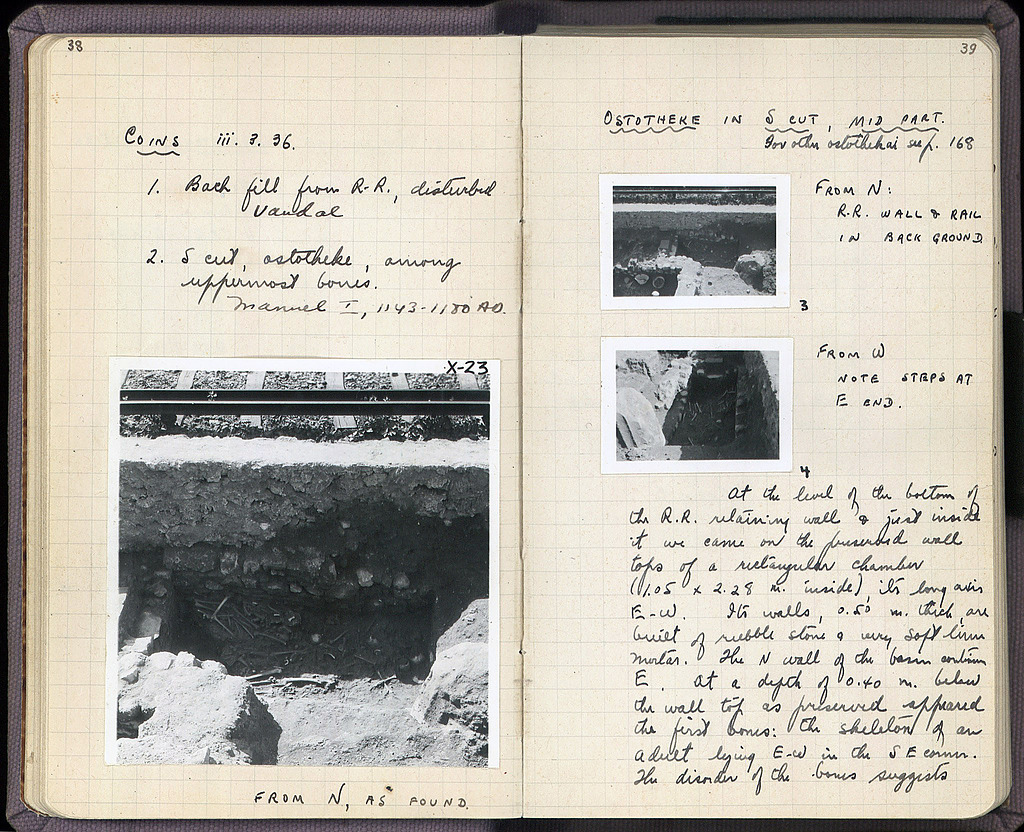 38
COINS iii. 3. 36.
1. Back fill from R-R., disturbed
Vandal
2. S cut, ostotheke, among
uppermost bones.
Manuel I, 1143-1180 AD.
X-23
FROM N, AS FOUND.
39
OSTOTHEKE IN S CUT, MID PART.
For other ostothekai see p. 168
FROM N:
R.R. WALL & RAIL
IN BACK GROUND
3
FROM W
NOTE STEPS AT
E END.
4
At the level of the bottom of
the R.R. retaining wall & just inside
it we came on the preserved wall
tops of a rectangular chamber
(1.05 x 2.28 m. inside), its long axis
E-W. Its walls, 0.50 m. thick, are
built of rubble stone & very soft lime
mortar. The N wall of the basin continues
E. At a depth of 0.40 m. below
the wall top as preserved appeared
the first bones: the skeleton of an
adult lying E-W in the SE corner.
The disorder of the bones suggests